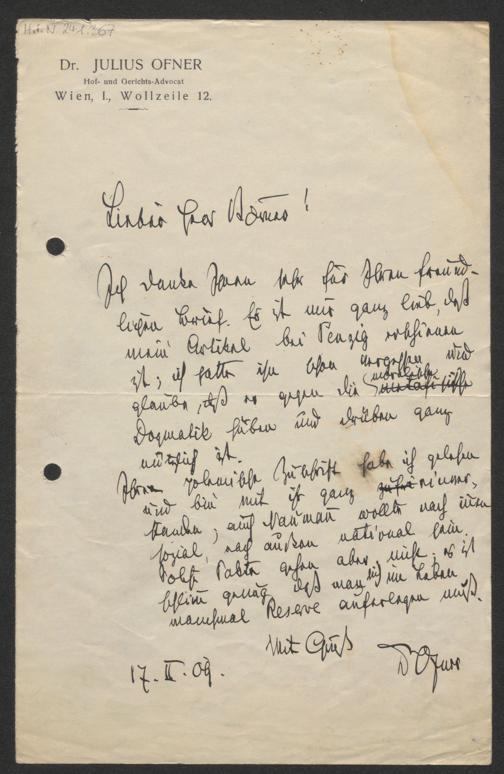 Dr. JULIUS OFNER
Hof- und Gerichts-Advocat
Wien, I., Wollzeile 12.
Lieber Herr Börner!
Ich danke Ihnen sehr für Ihren freund-
lichen Brief. Es ist mir ganz lieb, daß
mein Artikel bei Penzig erschienen
ist; ich hatte ihn schon vergessen und
glaube, daß er gegen die moralische
Dogmatik hüben und drüben ganz
nützlich ist.
Ihre polemische Zuschrift habe ich gelesen
und bin mit ihr ganz einver-
standen; auch Naumann wollte nach innen
sozial, nach außen national sein.
Solche gehen aber nicht; es ist
schlimm genug, daß man sich im Leben
manchmal Reserve auferlegen muß.
Mit Gruß
Dr Ofner
17. II. 09.